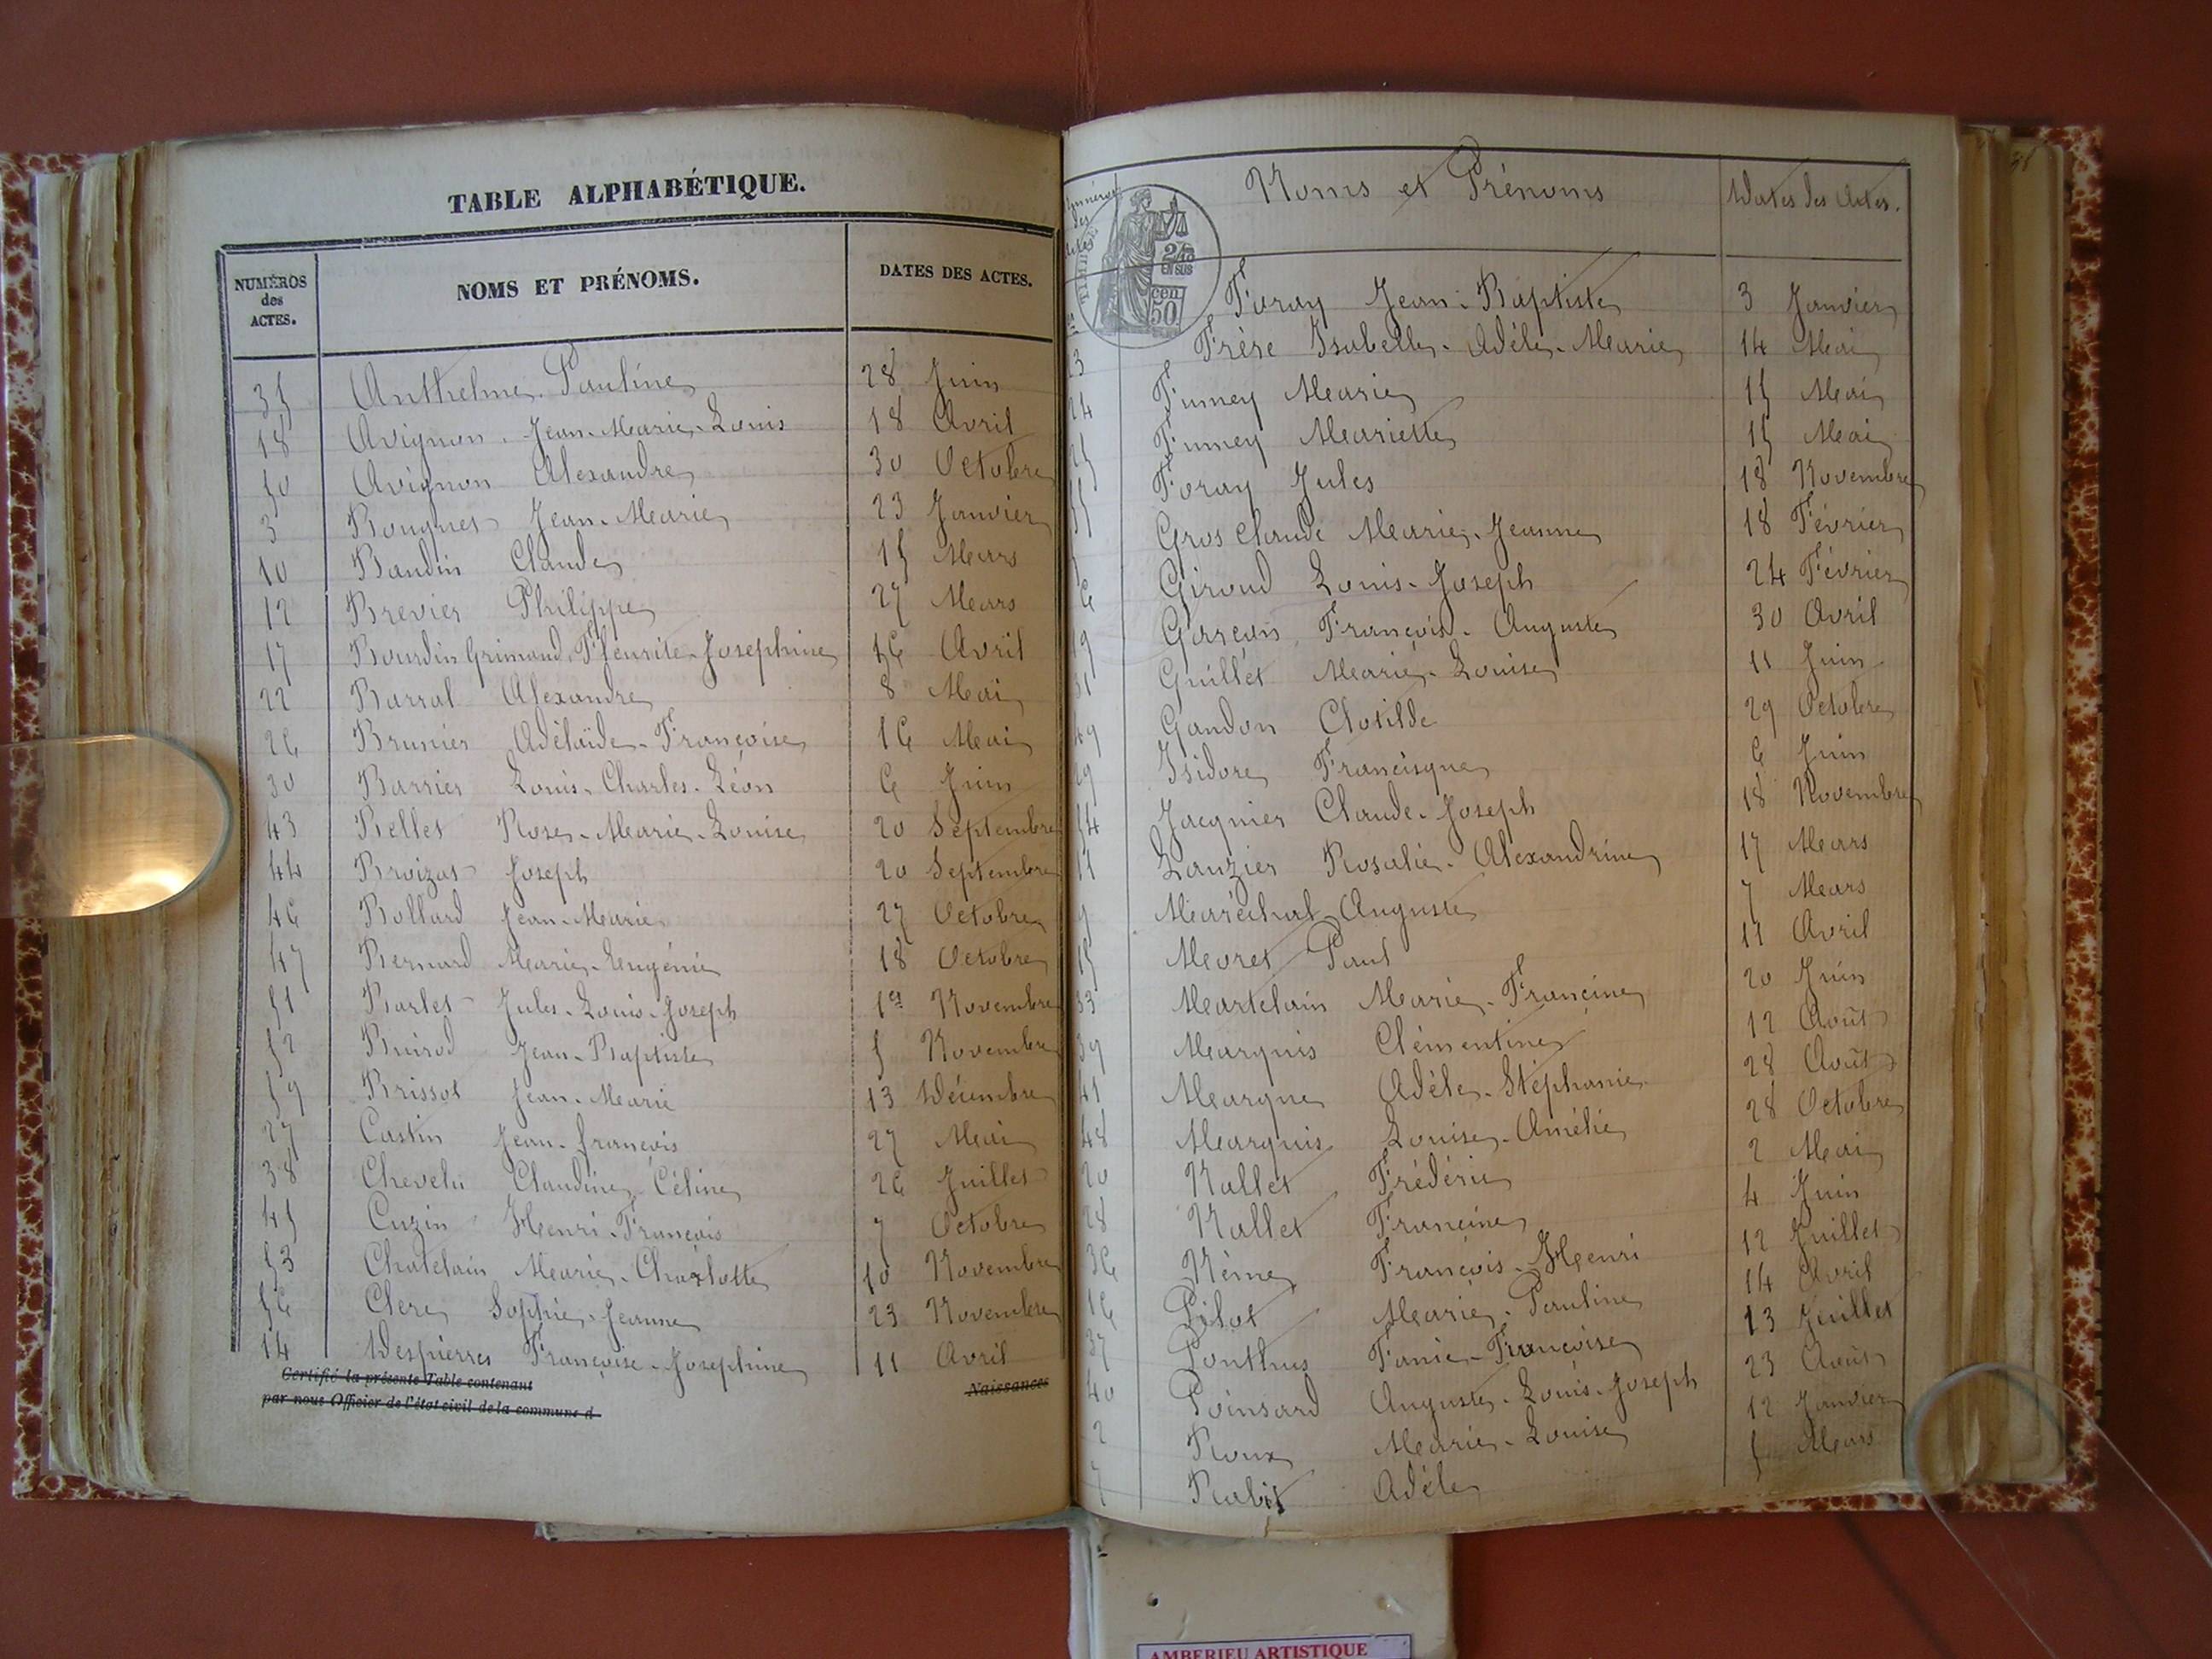 TABLE ALPHABÉTIQUE.
NUMÉROS des ACTES. NOMS ET PRÉNOMS. DATES DES ACTES.
35 Anthelme Pauline 28 Juin
18 Avignon Jean-Marie-Louis 18 Avril
50 Avignon Alexandre 30 Octobre
3 Bouguet Jean-Marie 23 Janvier
10 Baudin Claude 15 Mars
12 Brevier Philippe 27 Mars
17 Bourdin Grimaud Fleurite-Josephine 16 Avril
22 Barral Alexandre 8 Mai
26 Brunier Adélaïde-Françoise 16 Mai
30 Barrier Louis-Charles-Léon 6 Juin
43 Bellet Rose-Marie-Louise 20 Septembre
44 Broizat Joseph 20 Septembre
46 Bollard Jean-Marie 27 Octobre
47 Bernard Marie-Eugénie 18 Octobre
51 Barlet Jules-Louis-Joseph 1er Novembre
52 Buirod Jean-Baptiste 5 Novembre
59 Brissot Jean-Marie 13 Décembre
27 Castin Jean-françois 27 Mai
38 Chevelu Claudine Céline 26 Juillet
45 Cuzin Henri-François 7 Octobre
53 Chatelain Marie-Charlotte 10 Novembre
56 Clerc Sophie-Jeanne 23 Novembre
14 Despierres Françoise-Josephine 11 Avril
Certifié la présente Table contenant Naissances
par nous Officier de l'état civil de la commune d
Numéros des Actes Noms et Prénoms Dates des Actes.
2/10 EN SUS
50 cen
Foray Jean-Baptiste 3 Janvier
23 Frère Isabelle-Adèle-Marie 14 Mai
24 Fumey Marie 15 Mai
25 Fumey Mariette 15 Mai
55 Foray Jules 18 Novembre
Gros Claude Marie-Jeanne 18 Février
6 Giroud Louis-Joseph 24 Février
19 Garçon François-Auguste 30 Avril
31 Guillet Marie-Louise 11 Juin
49 Gandon Clotilde 29 Octobre
29 Isidore Francisque 6 Juin
54 Jacquier Claude-Joseph 18 Novembre
11 Lauzier Rosalie-Alexandrine 17 Mars
Maréchal Auguste 7 Mars
15 Moret Paul 11 Avril
33 Martelain Marie-Francine 20 Juin
39 Marquis Clémentine 12 Août
41 Margue Adèle-Stéphanie 28 Août
48 Marquis Louise-Amélie 28 Octobre
20 Nallet Frédéric 2 Mai
28 Nallet Francine 4 Juin
36 Nème François-Henri 12 Juillet
16 Pilot Marie-Pauline 14 Avril
37 Ponthus Fanie-Françoise 13 Juillet
40 Poinsard Auguste-Louis-Joseph 23 Août
2 Roux Marie-Louise 12 Janvier
7 Rabit Adèle 5 Mars
AMBERIEU ARTISTIQUE